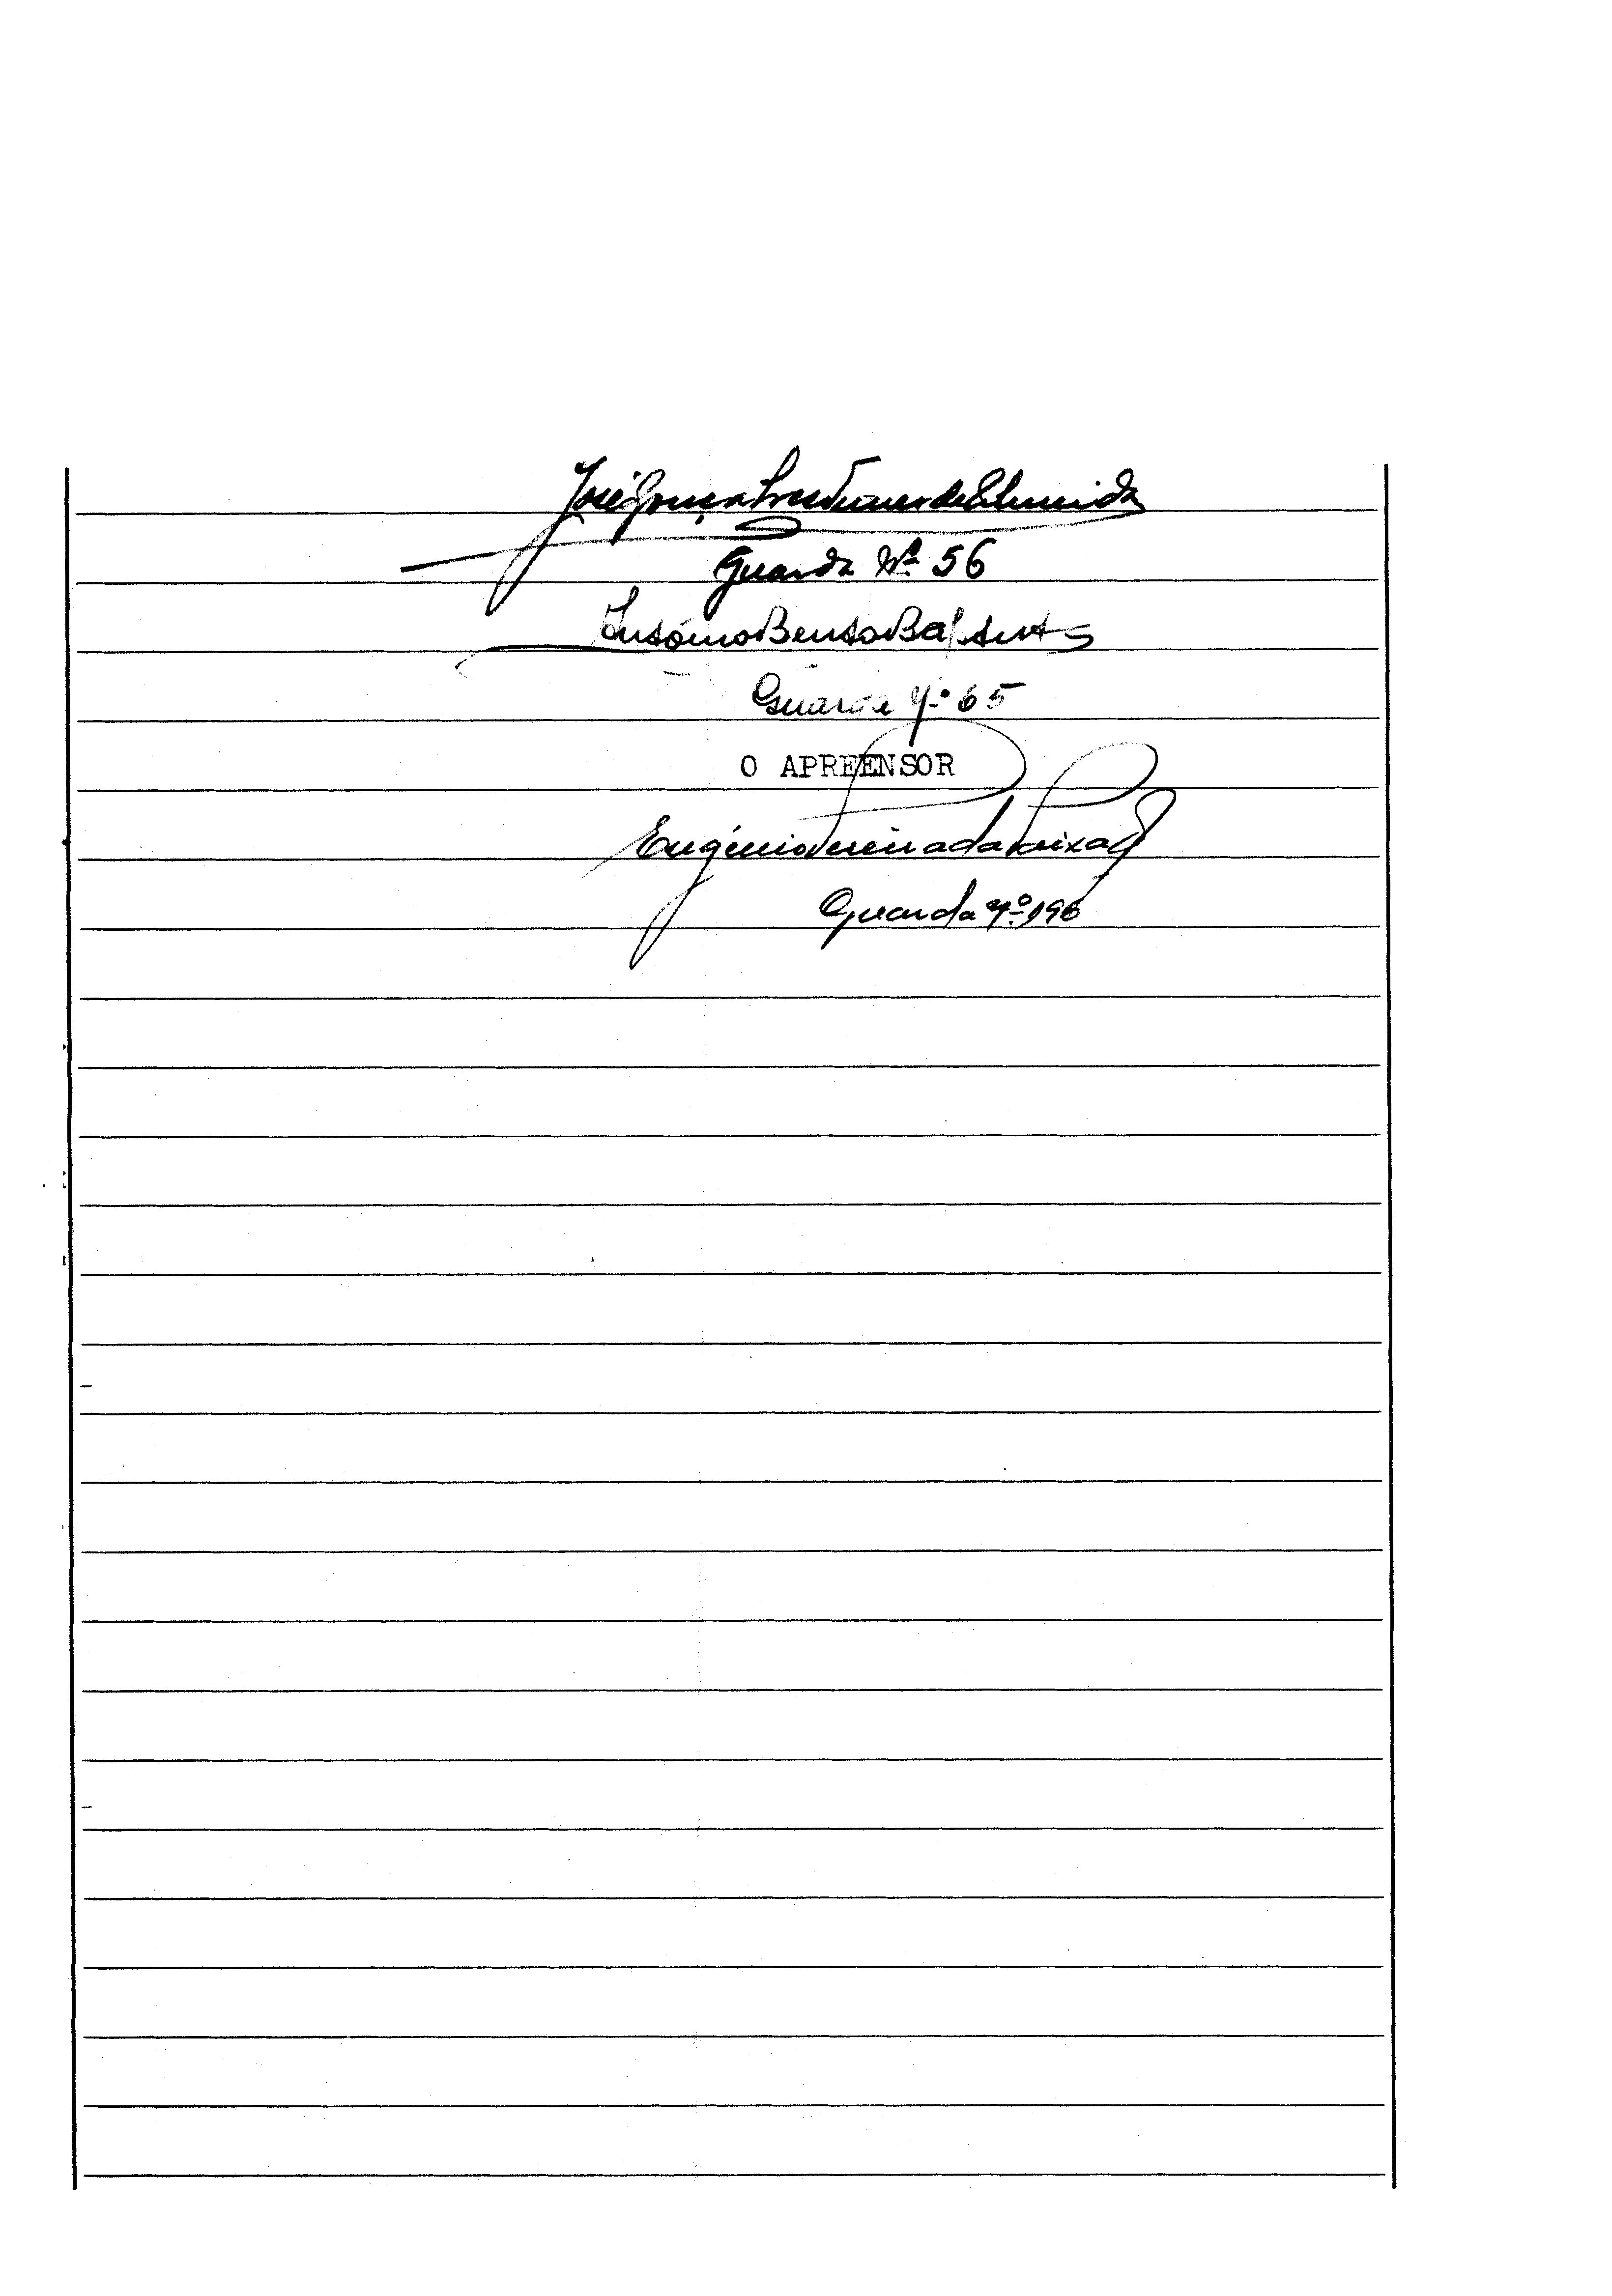 José Gonçalves Nunes de Almeida
Guarda Nº 56
António Bento Baptista
Guarda Nº 65
O APREENSOR
Eugénio Pereira da Paixão
Guarda nº 196